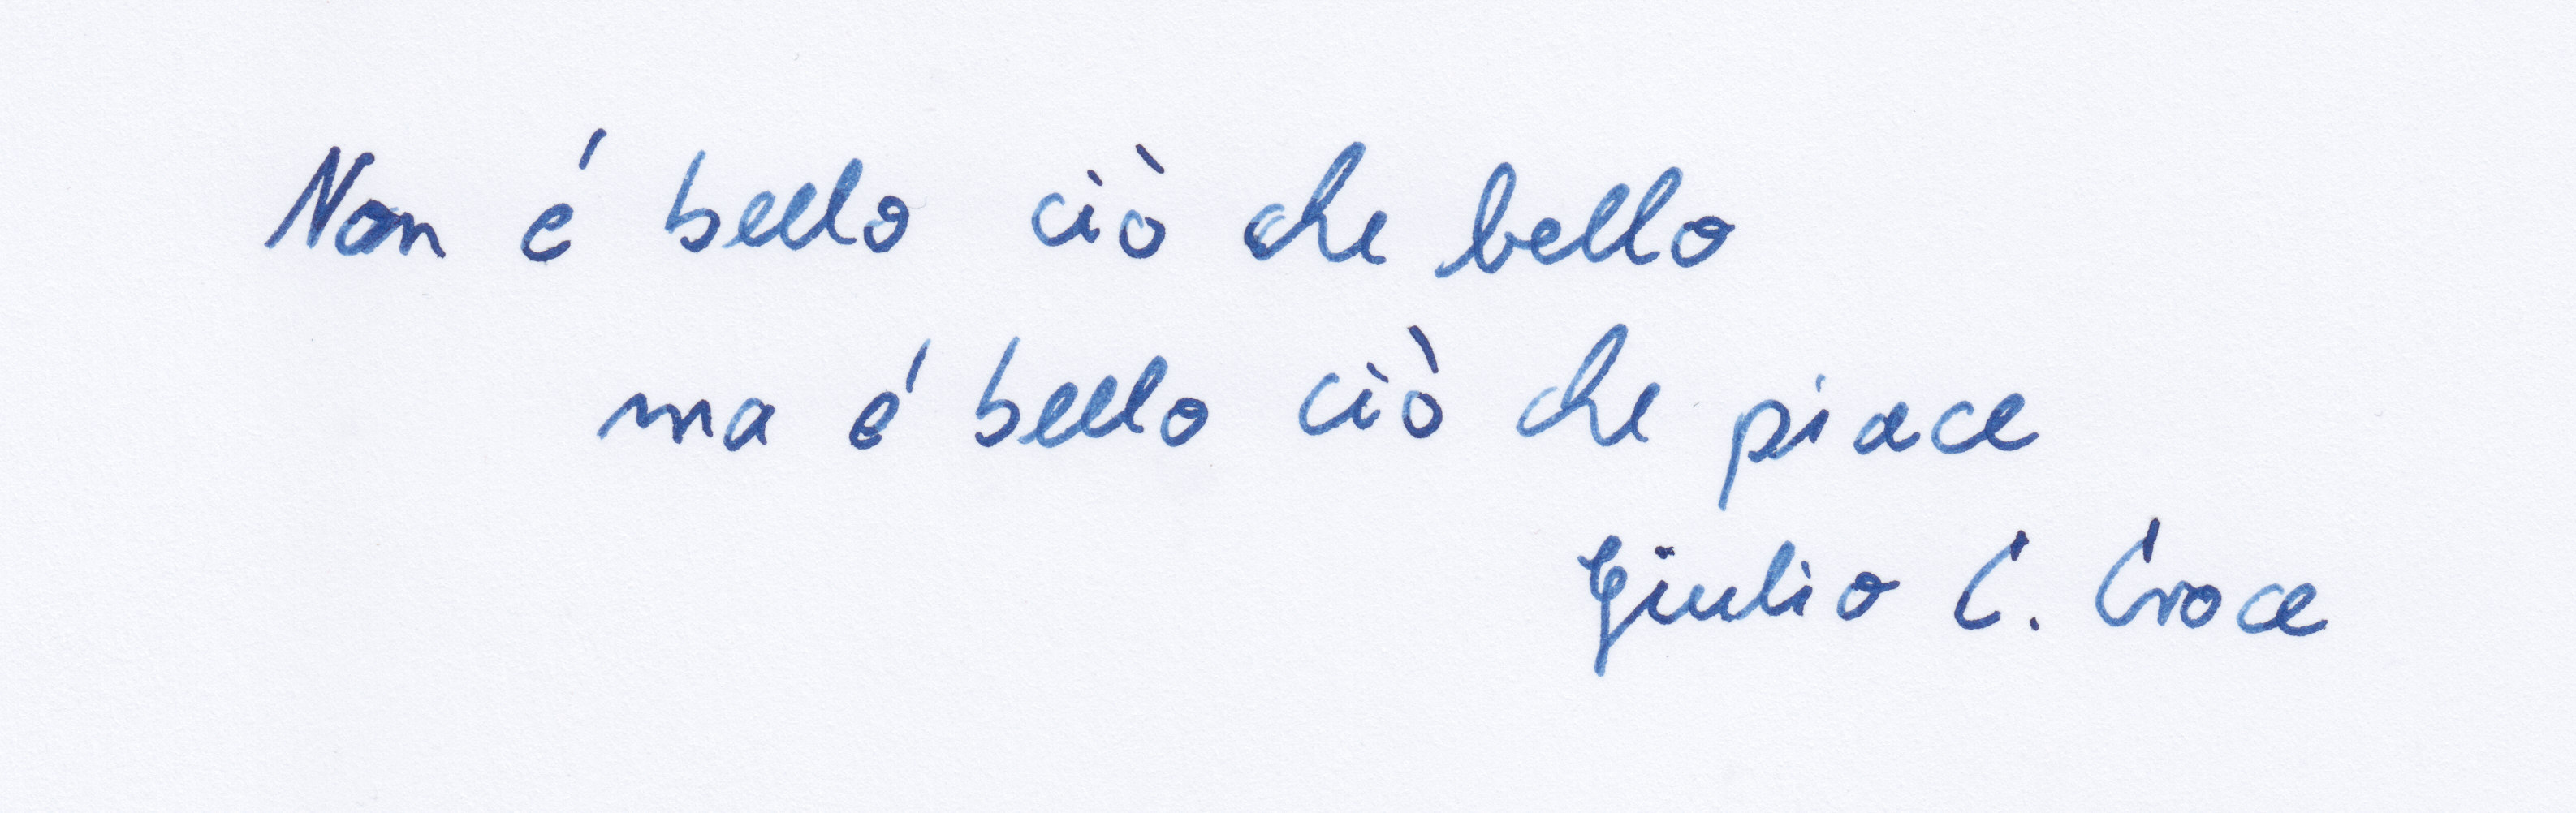 Non é bello ciò che bello
ma é bello ciò che piace
Giulio C. Croce